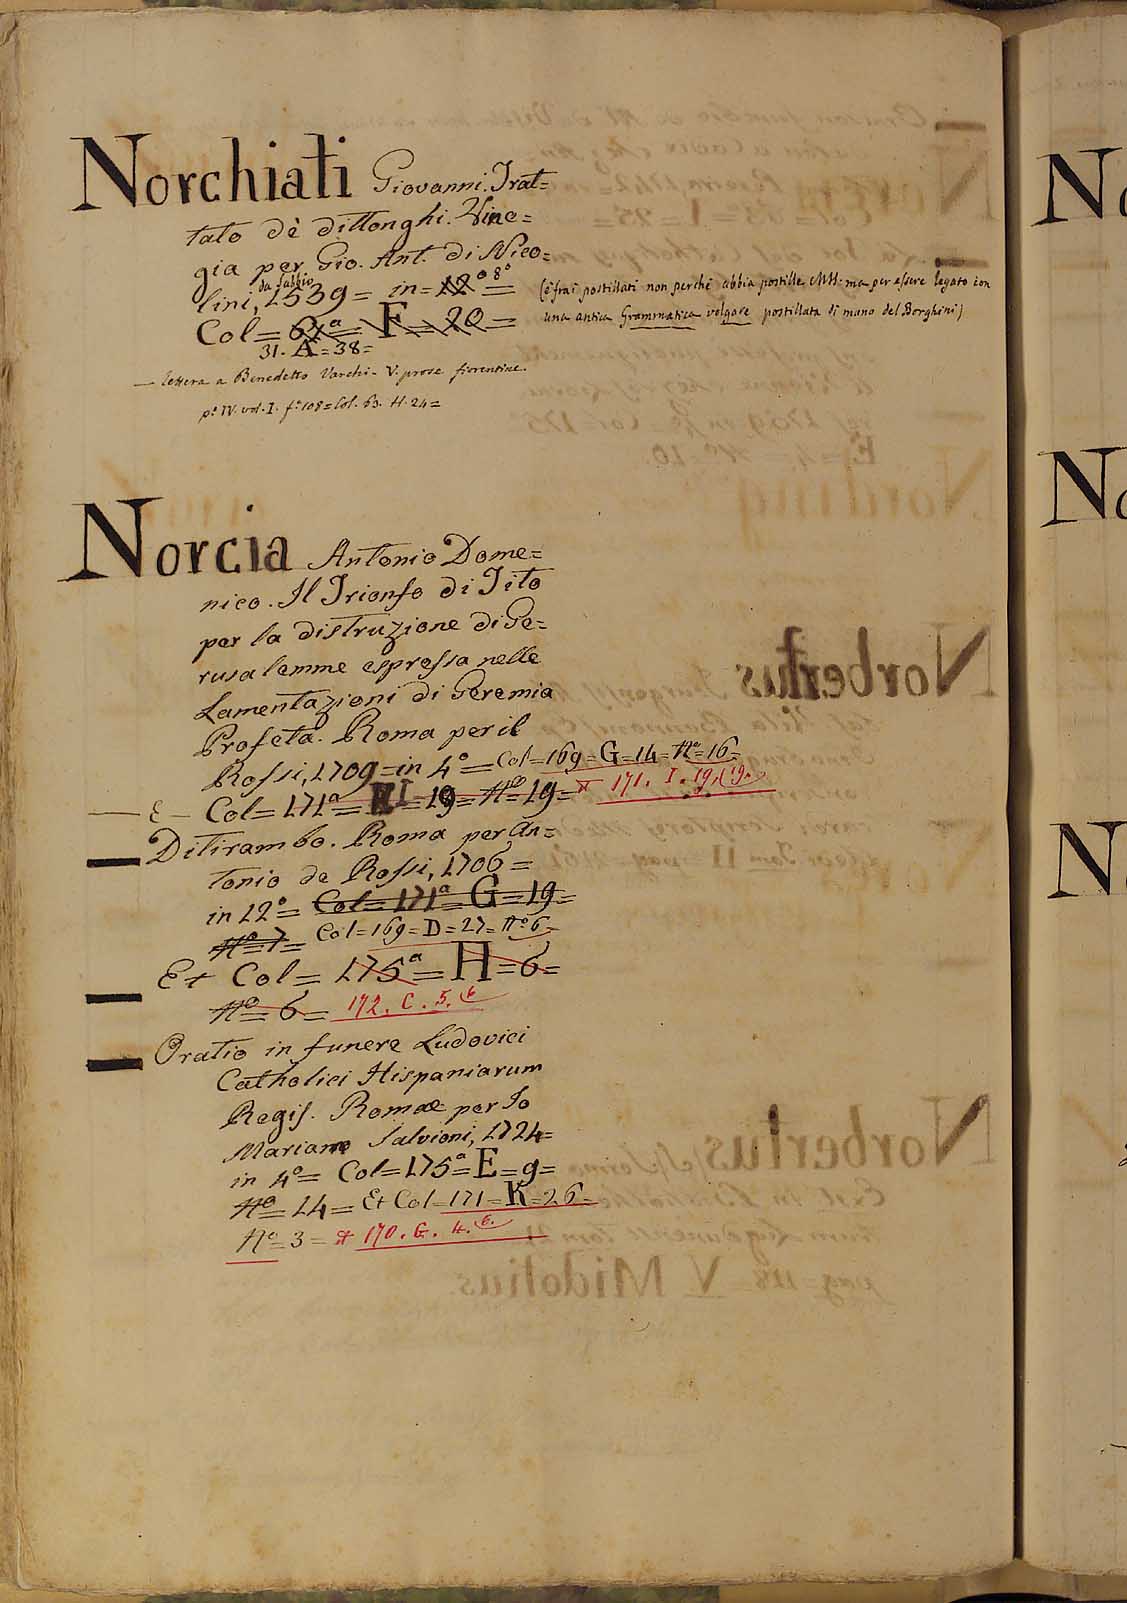 Norchiati Giovanni. Trat=
tato dè dittonghi. Vine=
gia per Gio. Ant. di Nico=
lini, da Sabbio 1539= in=12° 8°=
(è frai postillati non perchè abbia postille MM. ma per essere legato con
una antica Grammatica volgare postillata di mano del Borghini)
Col= 61ª= F= 20=
31. A=38=
— lettera a Benedetto Varchi. V. prose fiorentine.
pᵉ IV. vol. I. fᵒ 108= Col. 63. H. 24=
Norcia Antonio Dome=
nico. Il Trionfo di Tito
per la distruzione di Ge=
rusalemme espressa nelle
Lamentazioni di Geremia
Profeta. Roma per il
Rossi, 1709= in 4°= Col= 169= G=14= Nº=16=
— E — Col= 171ª= I= 19= Nº=19= 171. I. 19. (19.
Ditirambo. Roma per An=
tonio de Rossi, 1706=
in 12°= Col= 171ª= G= 19=
Nº=7= Col=169= D=27= Nº 6=
Et Col= 175ª= H=6=
Nº= 6= 172. C. 5. 6
Oratio in funere Ludovici
Catholici Hispaniarum
Regis. Romae per Jo
Mariam Salvioni, 1724=
in 4°= Col= 175ª= E=9=
Nº= 14= Et Col= 171= K=26=
Nº=3= 170. G. 4. 6.
N
N
N
Norbertus
Norbertus
V Midotius